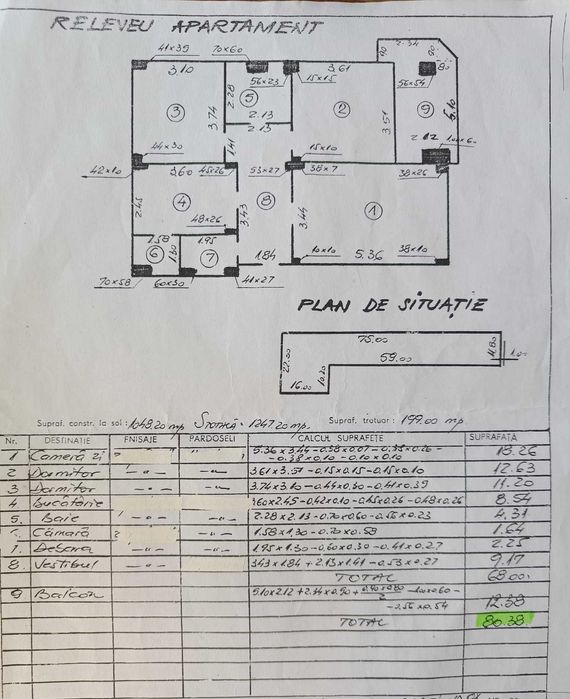 RELEVEU APARTAMENT
41x39
70x60
3.10
56x23
15x15
3.61
2.34
90
80
56x54
2.28
5
2.13
2.13
3
3.74
2
3.51
9
5.10
2.12
1.41
44x30
15x10
42x10
3.60
45x26
53x27
38x7
38x26
2.45
4
3.43
8
3.44
1
48x26
1.58
1.30
1.95
6
7
1.84
10x10
5.36
38x10
70x58
60x30
41x27
PLAN DE SITUAȚIE
75.00
59.00
22.00
16.00
10.20
11.80
1.00
Supraf. constr. la sol: 1048.20 mp
1247.20 mp.
Supraf. trotuar: 199.00 mp
Nr. DESTINAȚIE FNISAJE PARDOSELI CALCUL SUPRAFEȚE SUPRAFAȚĂ
1 Cameră zi 5.36x3.44-0.38x0.07-0.38x0.26-
-0.38x0.10-0.10x0.10 18.26
2 Dormitor -"- -"- 3.61x3.51-0.15x0.15-0.15x0.10 12.63
3 Dormitor -"- -"- 3.74x3.10-0.44x0.30-0.41x0.39 11.20
4 Bucătărie 3.60x2.45-0.42x0.10-0.45x0.26-0.48x0.26 8.54
5. Baie -"- -"- 2.28x2.13-0.70x0.60-0.56x0.23 4.31
6 Cămară 1.58x1.30-0.70x0.58 1.64
7 Debara -"- -"- 1.95x1.30-0.60x0.30-0.41x0.27 2.25
8. Vestibul -"- -"- 3.43x1.84+2.13x1.41-0.53x0.27 9.17
TOTAL 68.00
9 Balcon 5.10x2.12+2.34x0.90+ 0.90x0.80/2 -1.00x0.60-
-0.56x0.54 12.38
TOTAL 80.38